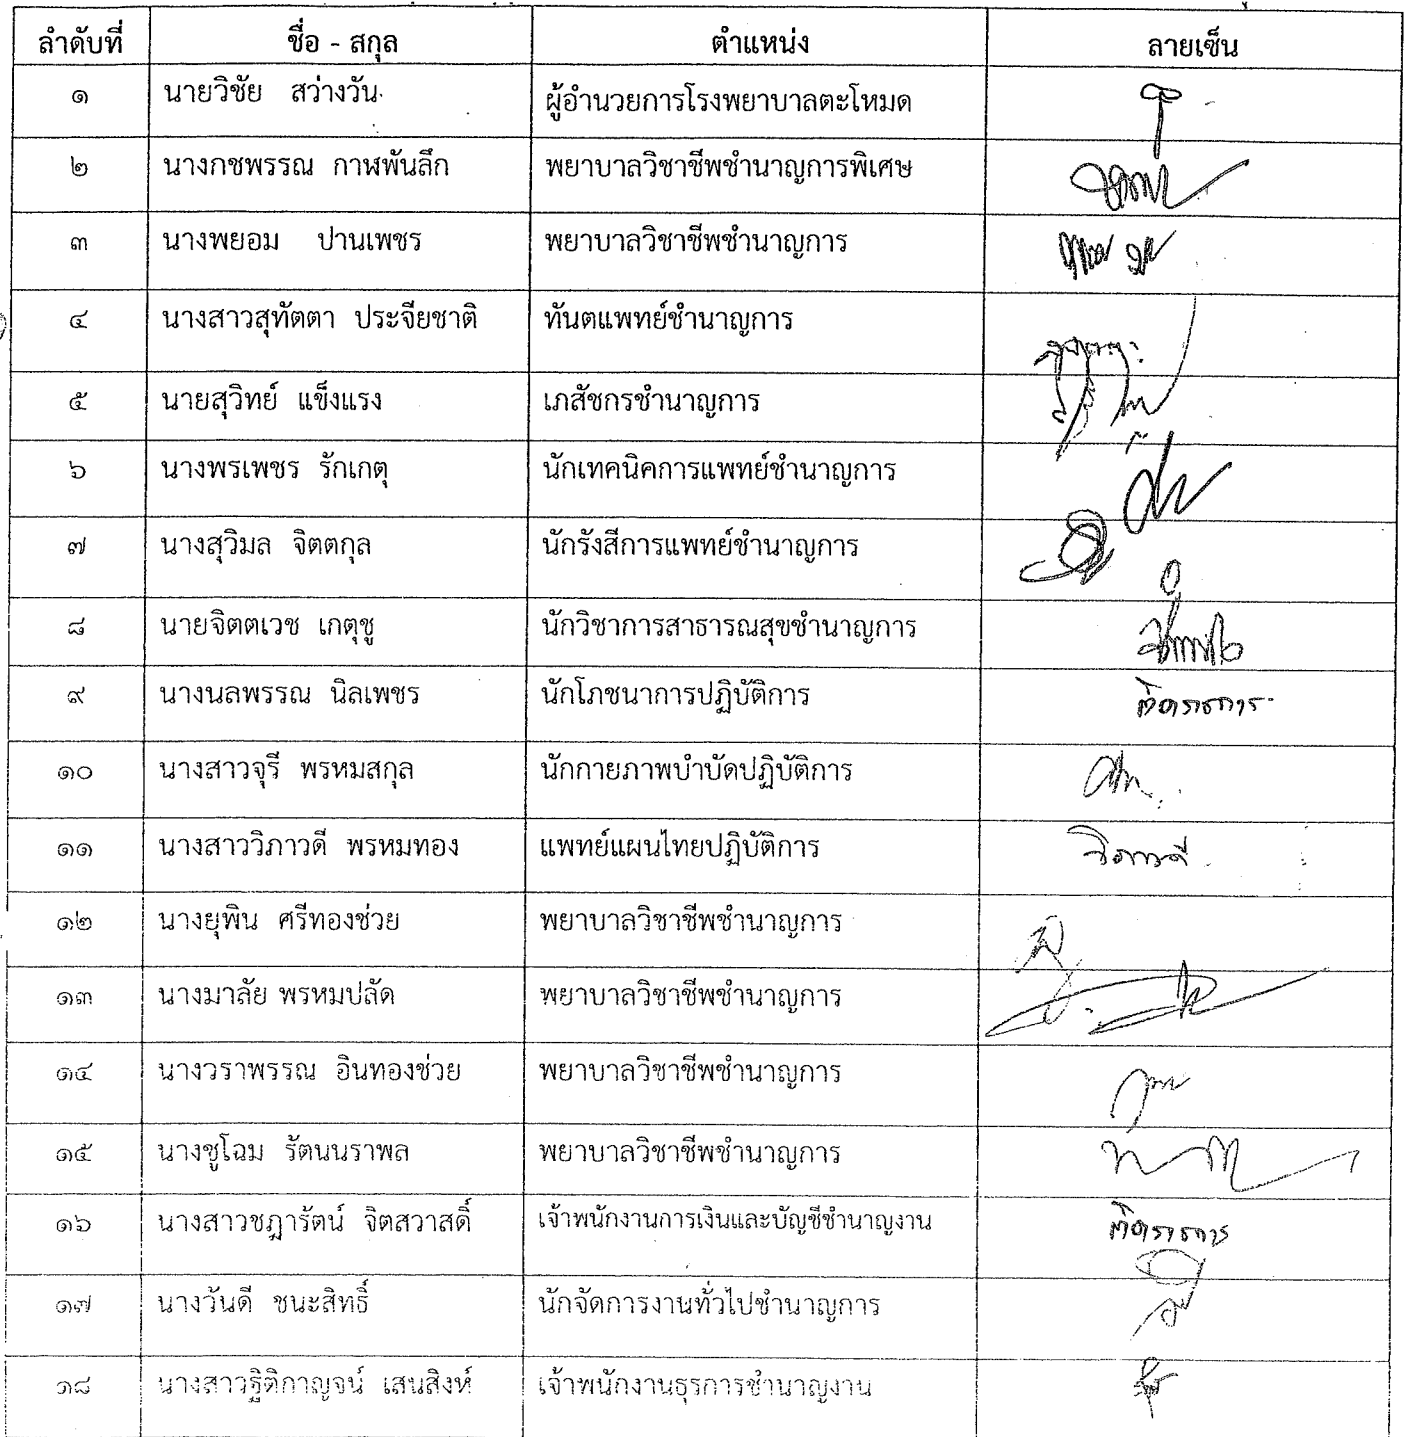 ลำดับที่ ชื่อ - สกุล ตำแหน่ง ลายเซ็น
๑ นายวิชัย สว่างวัน ผู้อำนวยการโรงพยาบาลตะโหมด
๒ นางกชพรรณ กาฬพันลึก พยาบาลวิชาชีพชำนาญการพิเศษ
๓ นางพยอม ปานเพชร พยาบาลวิชาชีพชำนาญการ
๔ นางสาวสุทัตตา ประจียชาติ ทันตแพทย์ชำนาญการ
๕ นายสุวิทย์ แข็งแรง เภสัชกรชำนาญการ
๖ นางพรเพชร รักเกตุ นักเทคนิคการแพทย์ชำนาญการ
๗ นางสุวิมล จิตตกุล นักรังสีการแพทย์ชำนาญการ
๘ นายจิตตเวช เกตุชู นักวิชาการสาธารณสุขชำนาญการ
๙ นางนลพรรณ นิลเพชร นักโภชนาการปฏิบัติการ ติดราชการ
๑๐ นางสาวจุรี พรหมสกุล นักกายภาพบำบัดปฏิบัติการ
๑๑ นางสาววิภาวดี พรหมทอง แพทย์แผนไทยปฏิบัติการ วิภาวดี
๑๒ นางยุพิน ศรีทองช่วย พยาบาลวิชาชีพชำนาญการ
๑๓ นางมาลัย พรหมปลัด พยาบาลวิชาชีพชำนาญการ
๑๔ นางวราพรรณ อินทองช่วย พยาบาลวิชาชีพชำนาญการ
๑๕ นางชูโฉม รัตนนราพล พยาบาลวิชาชีพชำนาญการ
๑๖ นางสาวชฎารัตน์ จิตสวาสดิ์ เจ้าพนักงานการเงินและบัญชีชำนาญงาน ติดราชการ
๑๗ นางวันดี ชนะสิทธิ์ นักจัดการงานทั่วไปชำนาญการ
๑๘ นางสาวฐิติกาญจน์ เสนสิงห์ เจ้าพนักงานธุรการชำนาญงาน